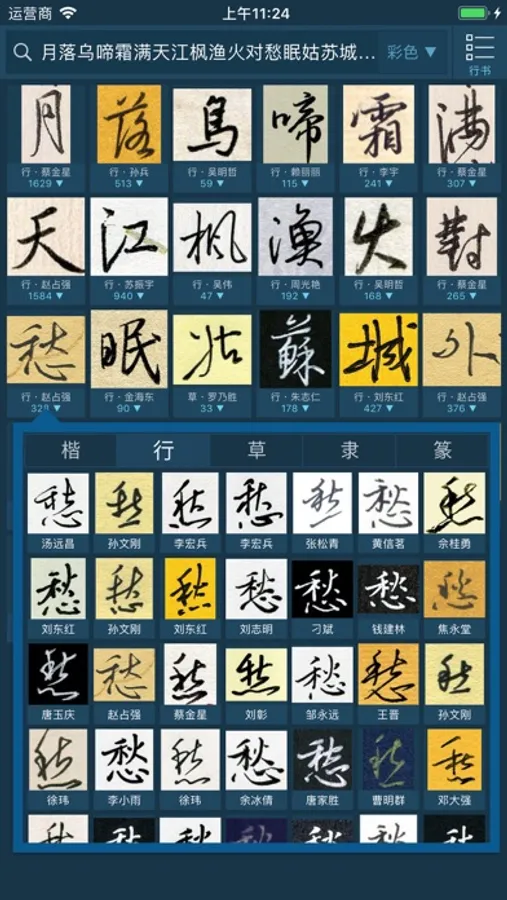 运营商 上午11:24
月落乌啼霜满天江枫渔火对愁眠姑苏城... 彩色 ▼ 行书
月 落 烏 啼 霜 满
行·蔡金星 行·孙兵 行·吴明哲 行·赖丽丽 行·李宇 行·蔡金星
1629 ▼ 513 ▼ 59 ▼ 115 ▼ 241 ▼ 307 ▼
天 江 枫 渔 火 對
行·赵占强 行·苏振宇 行·吴伟 行·周光艳 行·吴明哲 行·蔡金星
1584 ▼ 940 ▼ 47 ▼ 192 ▼ 168 ▼ 265 ▼
愁 眠 姑 蘇 城 外
行·赵占强 行·金海东 草·罗乃胜 行·朱志仁 行·刘东红 行·赵占强
328 ▼ 90 ▼ 33 ▼ 178 ▼ 427 ▼ 376 ▼
楷 行 草 隶 篆
愁 愁 愁 愁 愁 愁 愁
汤远昌 孙文刚 李宏兵 李宏兵 张松青 黄信茗 佘桂勇
愁 愁 愁 愁 愁 愁 愁
刘东红 孙文刚 刘东红 刘志明 刁斌 钱建林 焦永堂
愁 愁 愁 愁 愁 愁 愁
唐玉庆 赵占强 蔡金星 刘彰 邹永远 王晋 孙文刚
愁 愁 愁 愁 愁 愁 愁
徐玮 李小雨 徐玮 余冰倩 唐家胜 曹明群 邓大强